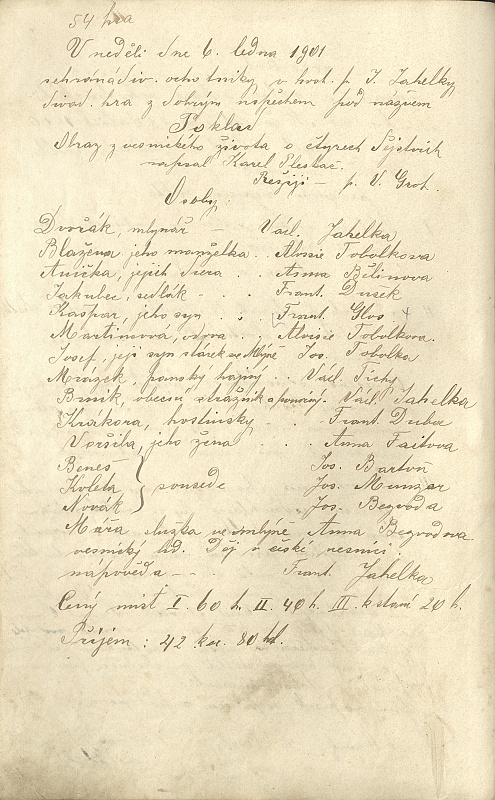 54 hra
V neděli dne 6. ledna 1901
sehrána div. ochotníky v host. p. J. Jahelky
divad. hra z dobrým úspěchem pod názvem
Poklad
Obraz z vesnického života o čtyrech dějstvích
napsal Karel Pleskač.
Režiji – p. V. Grof.
Osoby.
Dvořák, mlynář – Václ. Jahelka
Blažena jeho manželka . . Aloisie Tobolkova
Anička, jejich dcera . . Anna Bělinova
Jakubec, sedlák - . Frant. Dušek
Kašpar, jeho syn . . . Frant. Glos +
Martinová, vdova . . Aloisie Tobolkova.
Josef, její syn stárek ve mlýně Jos. Tobolka
Mrázek, panský hajný . . Václ. Tichý
Brník, obecní strážník a ponocný. Václ. Jahelka
Krákora, hostinský . . Frant. Dubec
Voršila, jeho žena . . . Anna Faitova
Beneš Jos. Bartoň
Koleta } sousedé Jos. Munzar
Novák Jos. Bezvoda
Mára služka ve mlýně Anna Bezvodova
vesnický lid. Děj v české vesnici
nápověda – – . Frant. Jahelka
Ceny míst I. 60 h. II. 40 h. III. k stání 20 h.
Příjem : 42 kor. 80 hl.